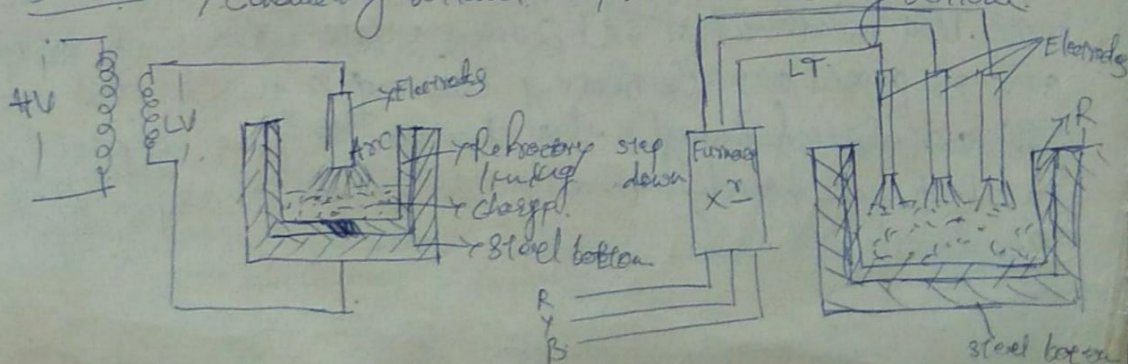 Conducting bottom
bottom.
HV
LV
Electrodes
Arc
Refractory
lining
charge.
Steel bottom
step
down
Furnace
Xr
LT.
Electrodes
R
R
Y
B
steel bottom